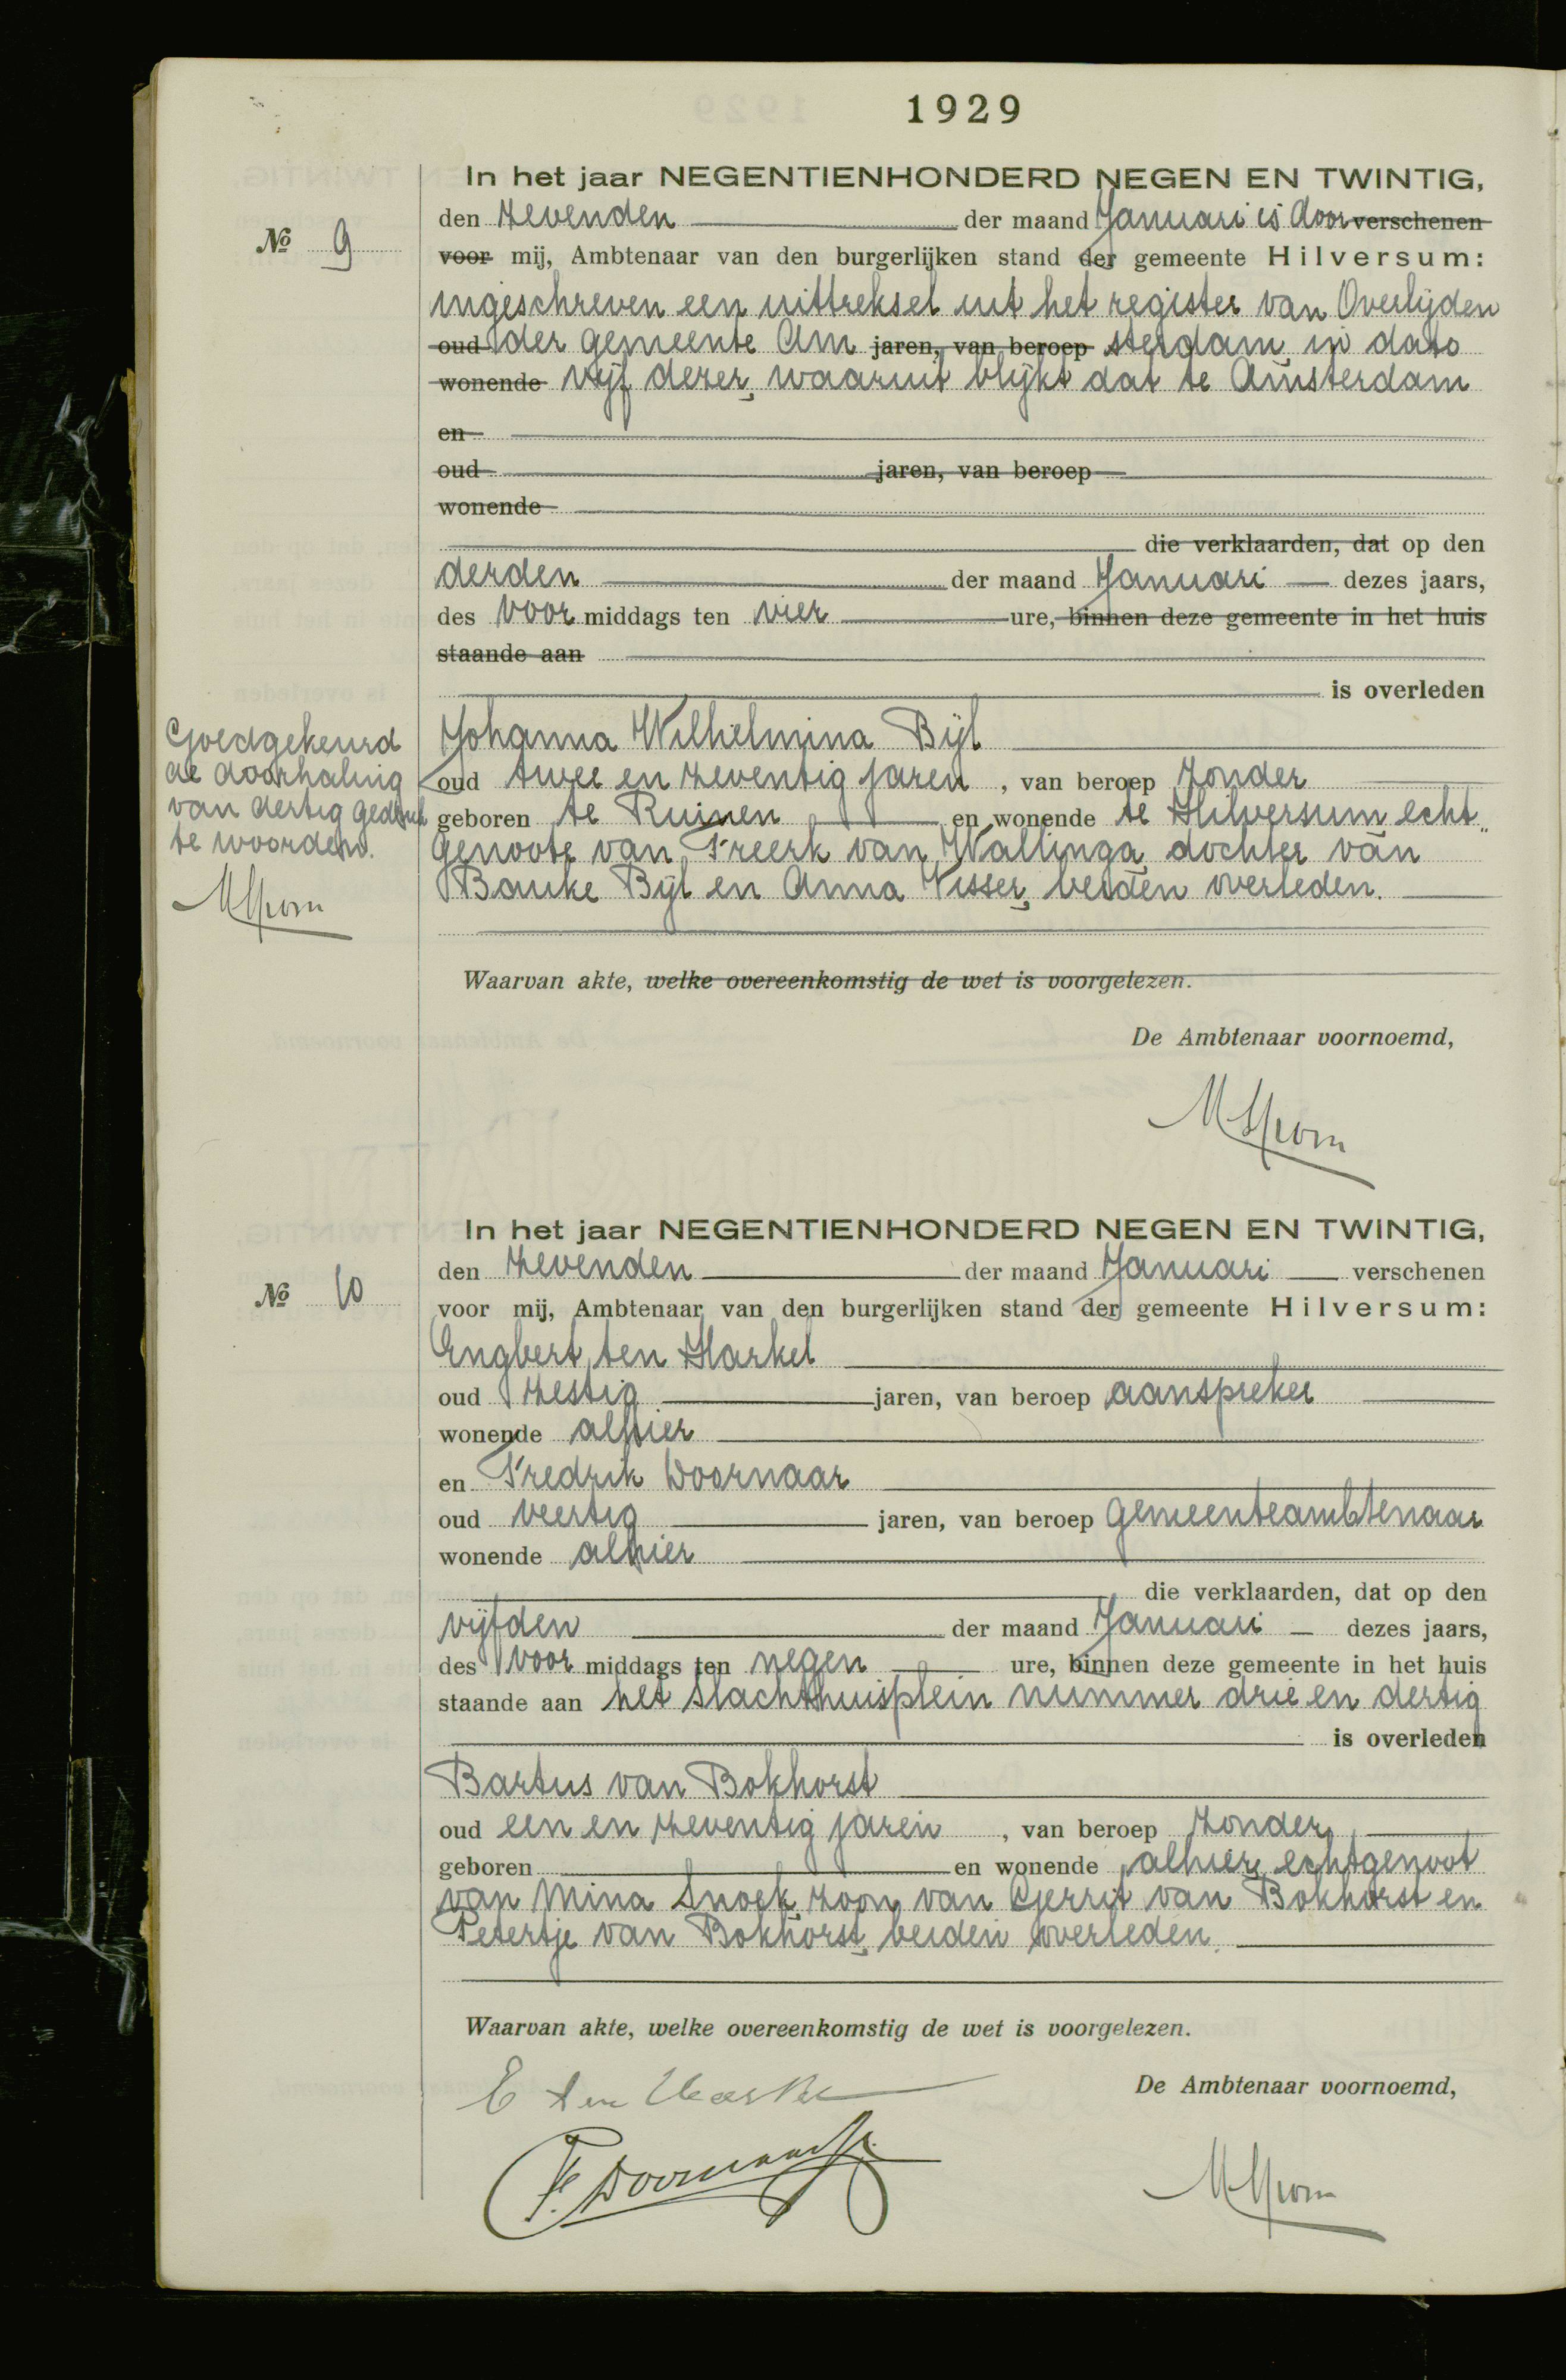 1929
In het jaar NEGENTIENHONDERD NEGEN EN TWINTIG,
den zevenden der maand Januari is door verschenen
No 9
voor mij, Ambtenaar van den burgerlijken stand der gemeente Hilversum:
ingeschreven een uittreksel uit het register van Overlijden
oud der gemeente Am jaren, van beroep sterdam in dato
wonende vijf dezer, waaruit blijkt dat te Amsterdam
en
oud jaren, van beroep
wonende
die verklaarden, dat op den
derden der maand Januari dezes jaars,
des voor middags ten vier ure, binnen deze gemeente in het huis
staande aan
is overleden
Johanna Wilhelmina Bijl
oud twee en zeventig jaren, van beroep zonder
geboren te Ruinen en wonende te Hilversum echt„
genoote van Freerk van Wallinga dochter van
Bauke Bijl en Anna Visser, beiden overleden.
Goedgekeurd
de doorhaling
van dertig gedrukte
te woorden.
Waarvan akte, welke overeenkomstig de wet is voorgelezen.
De Ambtenaar voornoemd,
In het jaar NEGENTIENHONDERD NEGEN EN TWINTIG,
den zevenden der maand Januari verschenen
No 10
voor mij, Ambtenaar van den burgerlijken stand der gemeente Hilversum:
Engbert ten Harkel
oud zestig jaren, van beroep aanspreker
wonende alhier
en Fredrik Doornaar
oud veertig jaren, van beroep gemeenteambtenaar
wonende alhier
die verklaarden, dat op den
vijfden der maand Januari dezes jaars,
des voor middags ten negen ure, binnen deze gemeente in het huis
staande aan het slachthuisplein nummer drie en dertig
is overleden
Bartus van Bokhorst
oud een en zeventig jaren, van beroep zonder,
geboren en wonende alhier, echtgenoot
van Mina Snoek, zoon van Gerrit van Bokhorst en
Petertje van Bokhorst, beiden overleden.
Waarvan akte, welke overeenkomstig de wet is voorgelezen.
E ten Harkel
De Ambtenaar voornoemd,
F. Doornaar